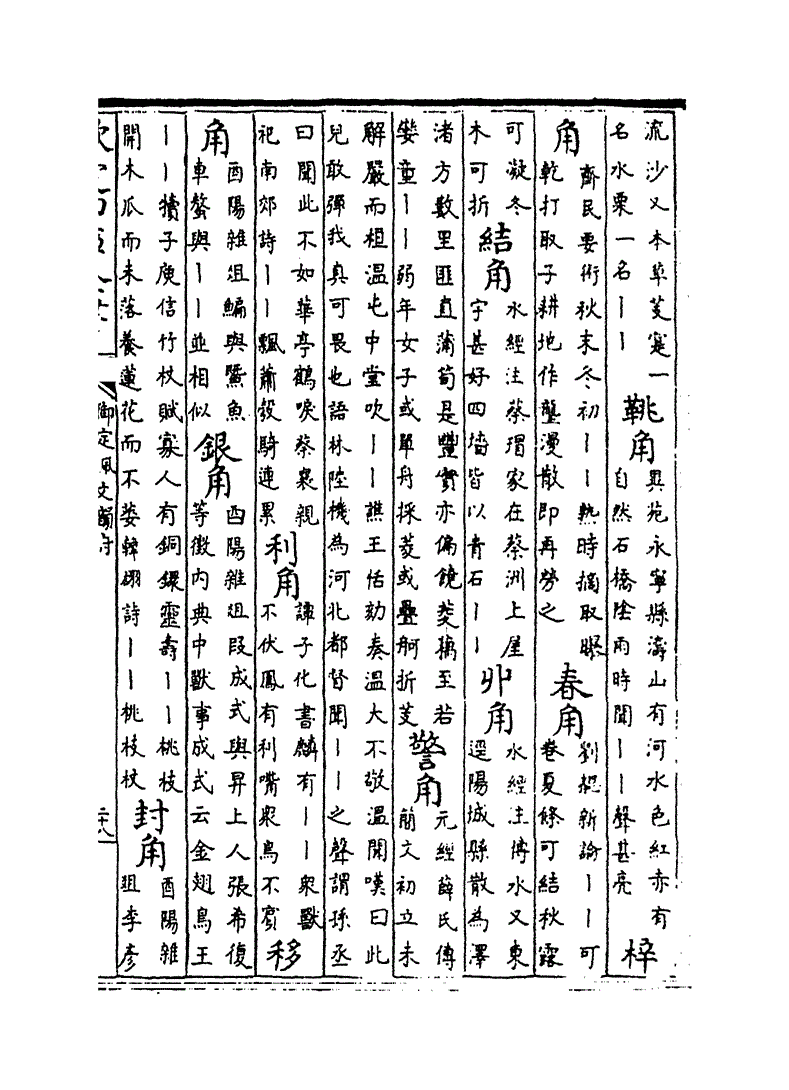 流沙又本草芰寔一
名水栗一名丨丨
鞉角
異苑永寧縣濤山有河水色紅赤有
自然石橋陰雨時聞丨丨聲甚亮
梓
角
齊民要術秋末冬初丨丨熟時摘取曝
乾打取子耕地作壟漫散即再勞之
春角
劉勰新論丨丨可
卷夏條可結秋露
可凝冬
木可折
結角
水經注蔡瑁家在蔡洲上屋
宇甚好四墻皆以青石丨丨
丱角
水經注博水又東
逕陽城縣散為澤
渚方數里匪直蒲筍是豐實亦偏饒菱藕至若
孌童丨丨弱年女子或單舟採菱或疊舸折芰
警角
元經薛氏傳
簡文初立未
解嚴而桓溫屯中堂吹丨丨譙王恬劾奏溫大不敬溫聞嘆曰此
兒敢彈我真可畏也語林陸機為河北都督聞丨丨之聲謂孫丞
曰聞此不如華亭鶴唳蔡襄親
祀南郊詩丨丨飄蕭彀騎連累
利角
譚子化書麟有丨丨衆獸
不伏鳳有利嘴衆鳥不賓
移
角
酉陽雜俎鯿與鱟魚
車螯與丨丨並相似
銀角
酉陽雜俎段成式與昇上人張希復
等徵內典中獸事成式云金翅鳥王
丨丨犢子庾信竹杖賦寡人有銅鐶靈壽丨丨桃枝
開木瓜而未落養蓮花而不萎韓翃詩丨丨桃枝杖
封角
酉陽雜
俎李彥
御定佩文韻府